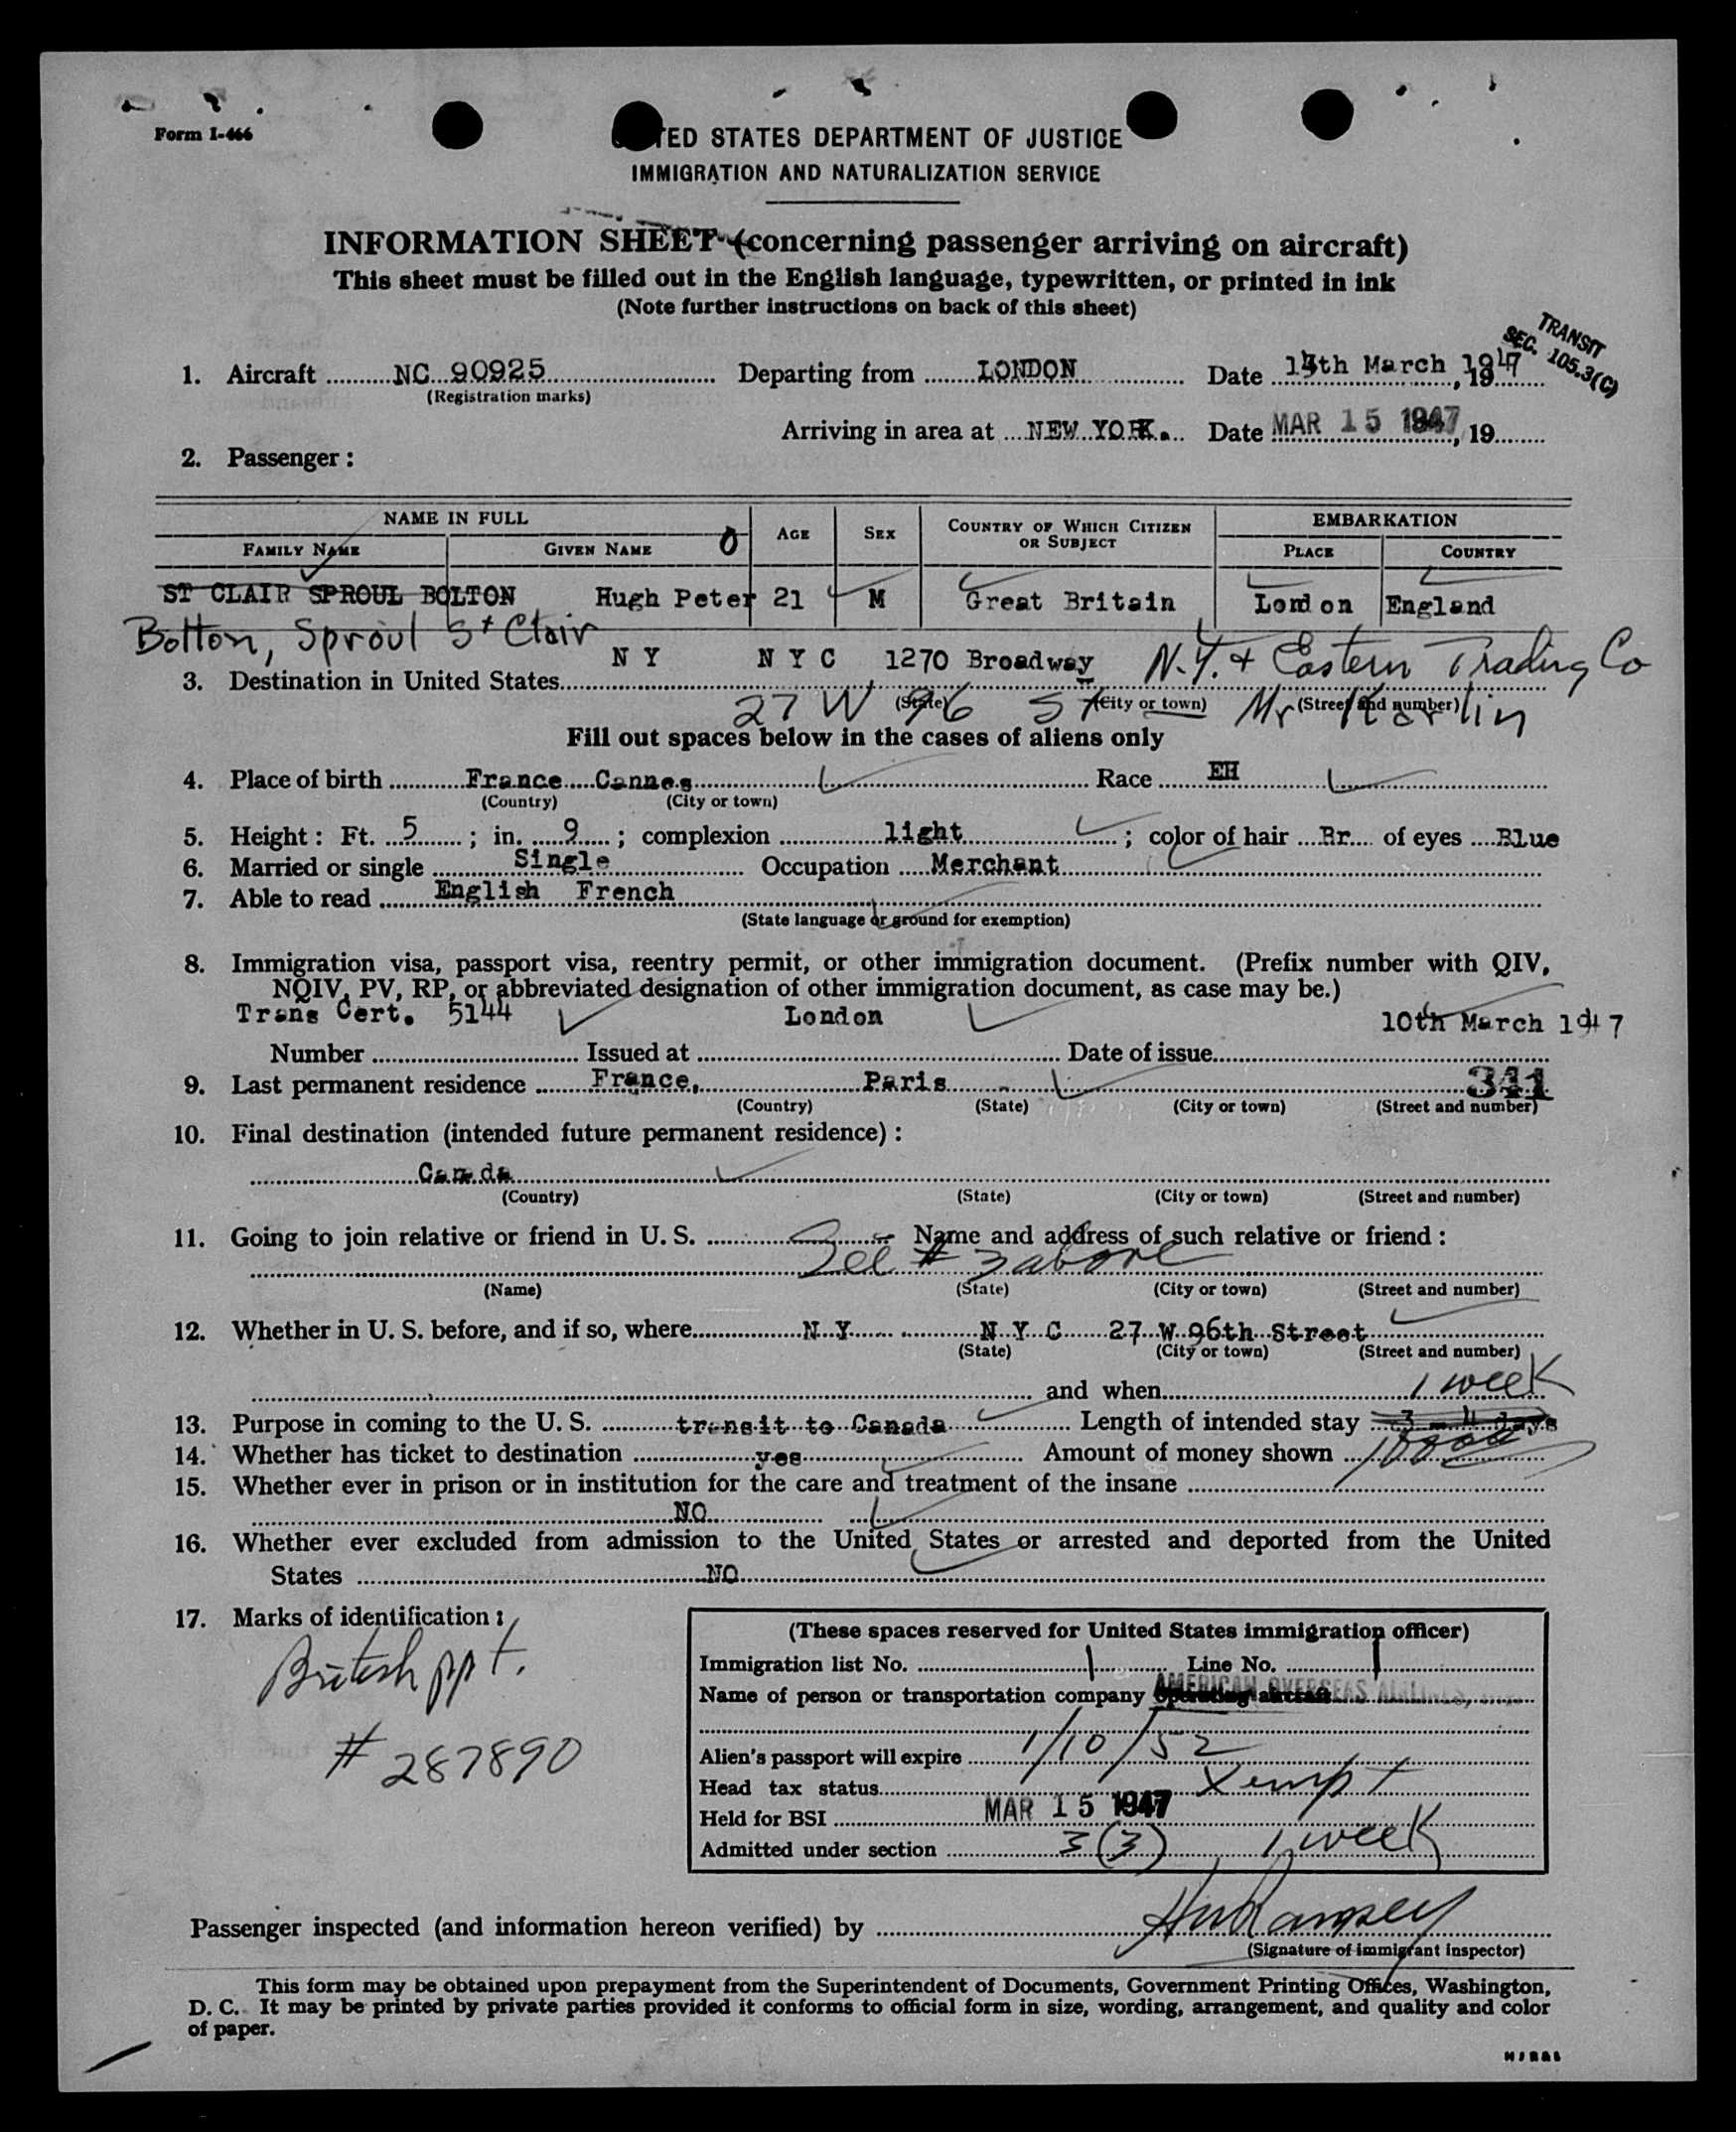 Form I-466
UNITED STATES DEPARTMENT OF JUSTICE
IMMIGRATION AND NATURALIZATION SERVICE
INFORMATION SHEET (concerning passenger arriving on aircraft)
This sheet must be filled out in the English language, typewritten, or printed in ink
(Note further instructions on back of this sheet)
TRANSIT
SEC. 105.3(C)
1. Aircraft NC 90925 Departing from LONDON Date 14th March 1947, 19
(Registration marks)
Arriving in area at NEW YORK. Date MAR 15 1947, 19
2. Passenger:
NAME IN FULL AGE SEX COUNTRY OF WHICH CITIZEN OR SUBJECT EMBARKATION
FAMILY NAME GIVEN NAME PLACE COUNTRY
ST CLAIR SPROUL BOLTON Hugh Peter 21 M Great Britain London England
Bolton, Sproul St Clair
N Y N Y C 1270 Broadway N.Y. + Eastern Trading Co
3. Destination in United States
(State) (City or town) (Street and number)
27 W 96 St Mr Karlin
Fill out spaces below in the cases of aliens only
4. Place of birth France Cannes Race EH
(Country) (City or town)
5. Height: Ft. 5; in. 9; complexion light; color of hair Br. of eyes Blue
6. Married or single Single Occupation Merchant
7. Able to read English French
(State language or ground for exemption)
8. Immigration visa, passport visa, reentry permit, or other immigration document. (Prefix number with QIV,
NQIV, PV, RP, or abbreviated designation of other immigration document, as case may be.)
Trans Cert. 5144 London 10th March 1947
Number Issued at Date of issue
9. Last permanent residence France, Paris 341
(Country) (State) (City or town) (Street and number)
10. Final destination (intended future permanent residence):
Canada
(Country) (State) (City or town) (Street and number)
11. Going to join relative or friend in U. S. Name and address of such relative or friend:
See # 3 above
(Name) (State) (City or town) (Street and number)
12. Whether in U. S. before, and if so, where N Y N Y C 27 W 96th Street
(State) (City or town) (Street and number)
and when 1 week
13. Purpose in coming to the U. S. transit to Canada Length of intended stay 3 - 4 days
14. Whether has ticket to destination yes Amount of money shown
15. Whether ever in prison or in institution for the care and treatment of the insane
NO
16. Whether ever excluded from admission to the United States or arrested and deported from the United
States NO
17. Marks of identification:
British ppt.
# 287890
(These spaces reserved for United States immigration officer)
Immigration list No. 1 Line No. 1
Name of person or transportation company operating aircraft AMERICAN OVERSEAS AIRLINES,
Alien's passport will expire 1/10/52
Head tax status Xempt
Held for BSI MAR 15 1947
Admitted under section 3(3) 1 week
Passenger inspected (and information hereon verified) by
(Signature of immigrant inspector)
This form may be obtained upon prepayment from the Superintendent of Documents, Government Printing Offices, Washington,
D. C. It may be printed by private parties provided it conforms to official form in size, wording, arrangement, and quality and color
of paper.